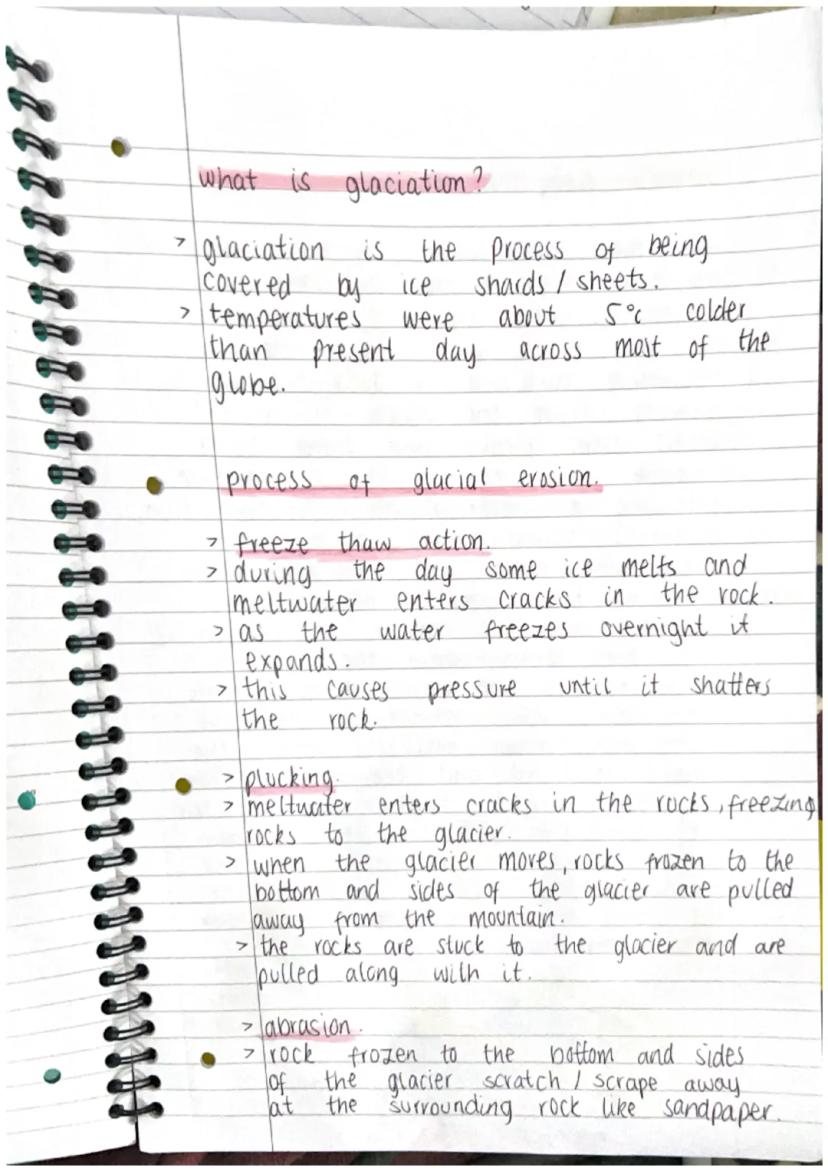 what is glaciation?
> glaciation is the process of being
covered by ice shards / sheets.
> temperatures were about 5°c colder
than present day across most of the
globe.
process of glacial erosion.
> freeze thaw action.
> during the day some ice melts and
meltwater enters cracks in the rock.
> as the water freezes overnight it
expands.
> this causes pressure until it shatters
the rock.
> plucking.
> meltwater enters cracks in the rocks, freezing
rocks to the glacier.
> when the glacier moves, rocks frozen to the
bottom and sides of the glacier are pulled
away from the mountain.
> the rocks are stuck to the glacier and are
pulled along with it.
> abrasion.
> rock frozen to the bottom and sides
of the glacier scratch / scrape away
at the surrounding rock like sandpaper.